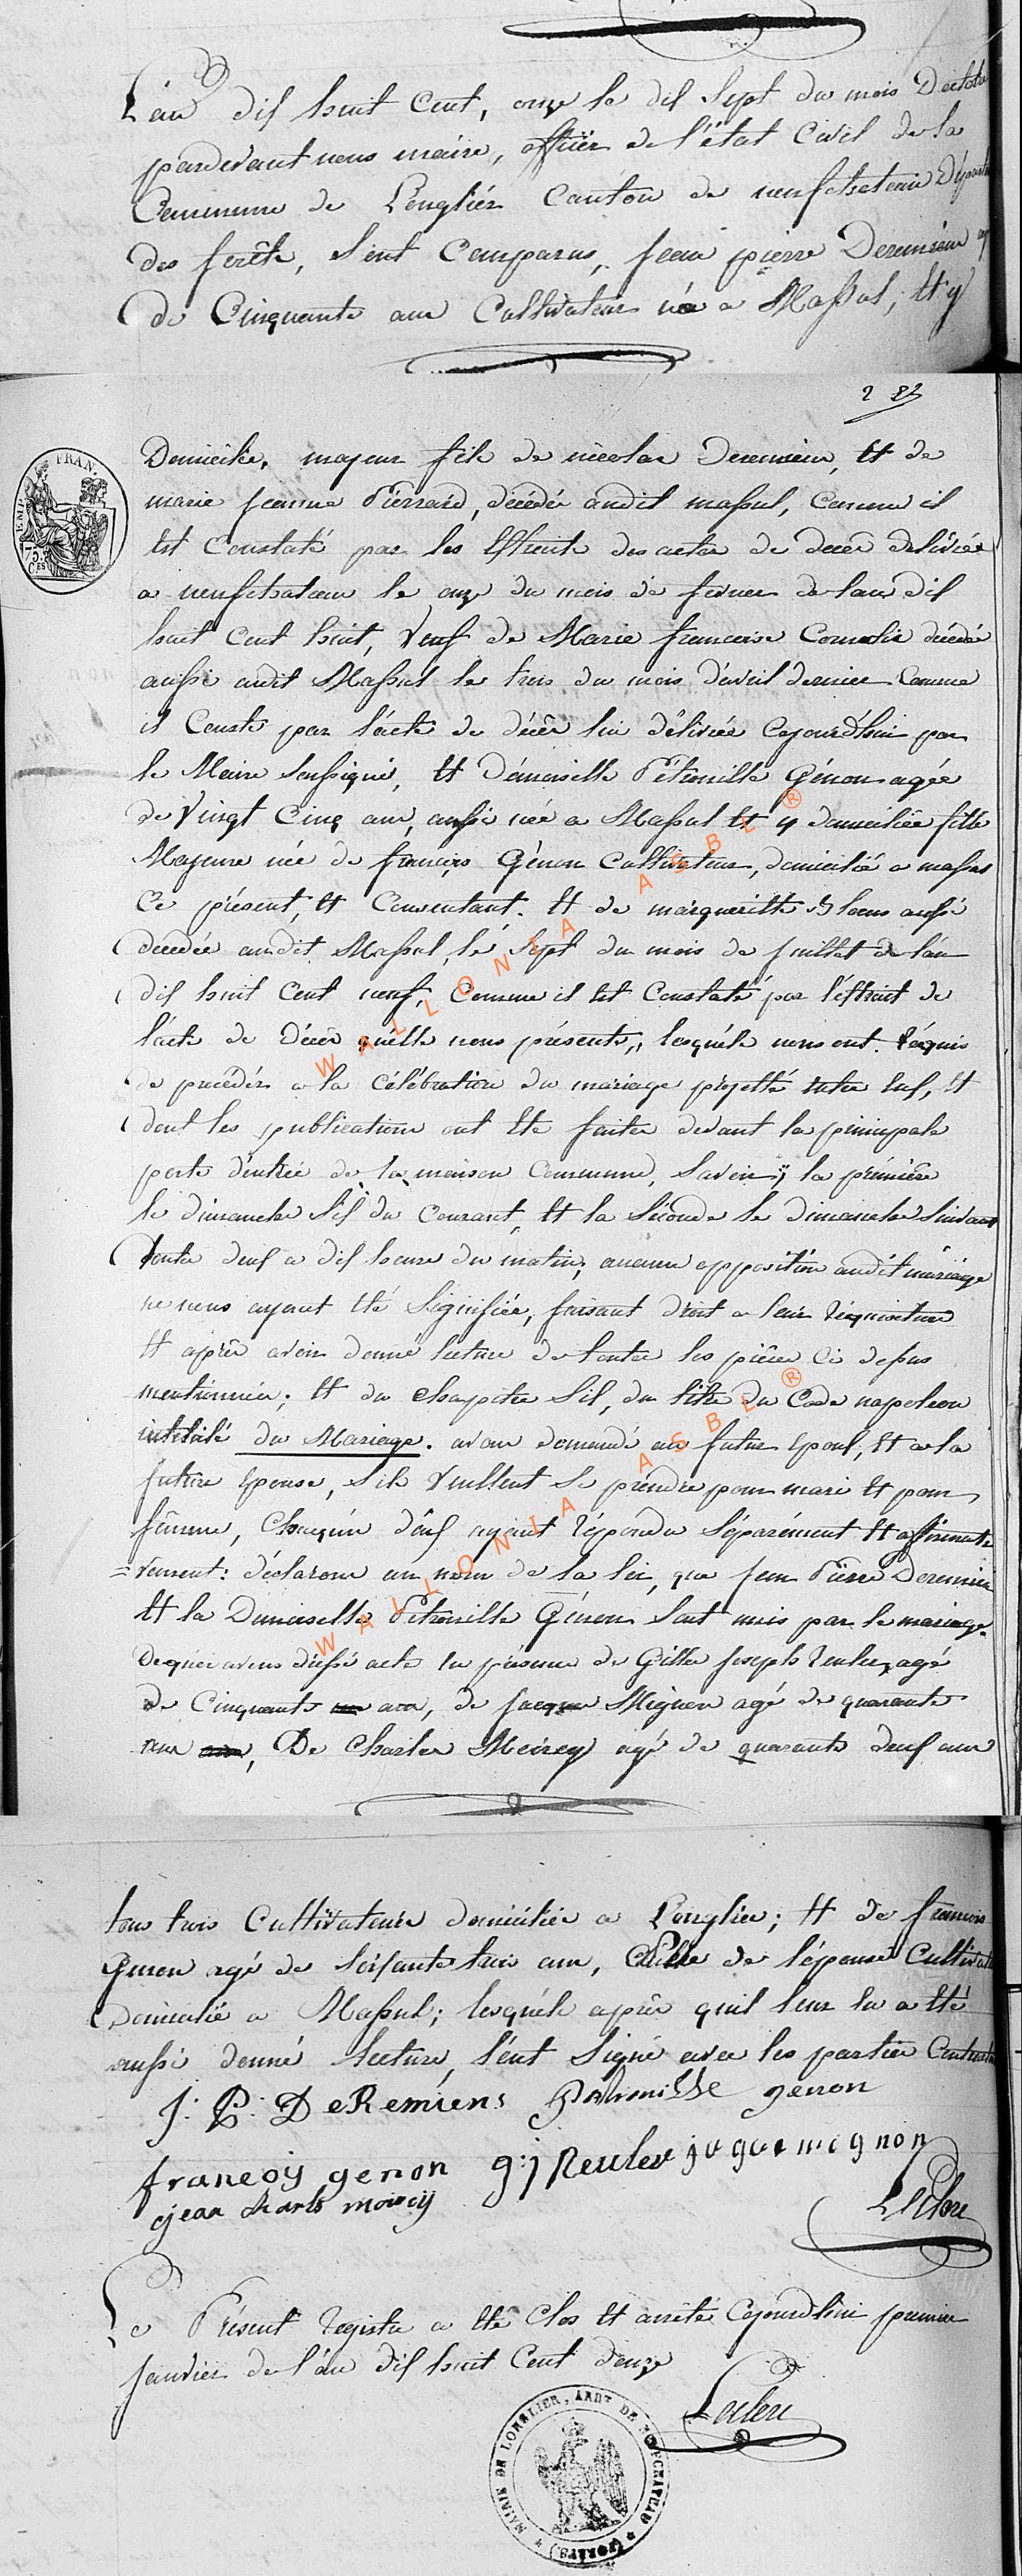 L'an dix huit Cent, onze le dix sept du mois D'octob
pardevant nous maire, officier de l'état Civil de la
Commune de Longlier Canton de neufchateau Départ
des forêts, sont comparus, jean pierre Deremiens
de Cinquante ans Cultivateur né a Massul, et y
2 87
Domicilié, majeur fils de nicolas Deremiens, et de
marie jeanne Pierrard, décédés audit massul, comme il
est Constaté par les extraits des actes de décès délivrés
a neufchateau le onze du mois de fevrier de l'an dix
huit Cent huit, veuf de Marie francoise décédée
aussi audit Massul le trois du mois d'avril dernier Comme
il Conste par l'acte de décès lui délivrée Cejourd'hui par
le Maire Soussigné, et démoiselle Pétronille Génon agée
de Vingt Cinq ans, aussi née a Massul et y domiciliée fille
Majeure née de françois Génon Cultivateur, domicilié a massul
Ce présent, et Consentant. et de marguerite aussi
décédée audit Massul, le sept du mois de juillet de l'an
dix huit Cent neuf, Comme il est Constaté par l'extrait de
l'acte de Décès qu'elle nous présente, lesquéls nous ont réquis
de procéder a la célébration du mariage projetté entre eux, et
dont les publications ont eté faites devant la principale
porte d'entrée de la maison Commune, savoir; la première
le dimanche six du Courant, et la Séconde le dimanche Suivant
toutes deux a dix heures du matin; aucune opposition audit mariage
ne nous ayant été Signifiée, faisant droit a leur réquisition
et après avoir donné lecture de toutes les pièces Ci dessus
mentionnées; et du chapitre Six, du titre du Code napoléon
intitulé du Mariage. avons demandé au futur Epoux, et a la
future Epouse, s'ils veullent Se prendre pour mari et pour
fémme, Chaqu'un d'eux ayant répondu Séparément et affirmati
=vement: déclarons au nom de la loi, que jean Pierre Deremien
et la Demoiselle Pétronille Génon sont unis par le mariage.
dequoi avons dressé acte en présence de Gille joseph Reuler, agé
de Cinquante ans, de jacque Mignon agé de quarante
, De Charles Moirey agé de quarante deux ans
tous trois Cultivateurs domiciliés a Longlier; et de francois
Genon agé de soixante trois ans, de l'épouse Cultivat
Domicilié a Massul; lesquéls après qu'il leur en a été
aussi donné lecture, l'ont Signé avec les parties Contracta
J: P: DeRemiens Petronille genon
francoy genon g:j Reuler jaque mignon
jean charls moirey Leclerc
Le Présent registre a eté Clos et arrêté Cejourd'hui premier
janvier de l'an dix huit Cent douze
Leclerc
MAIRIE DE LONGLIER, ARRT DE NEUFCHATEAU (FORÊTS)
EMP. FRAN.
75
CES
WALLONIA ASBL ®
WALLONIA ASBL ®